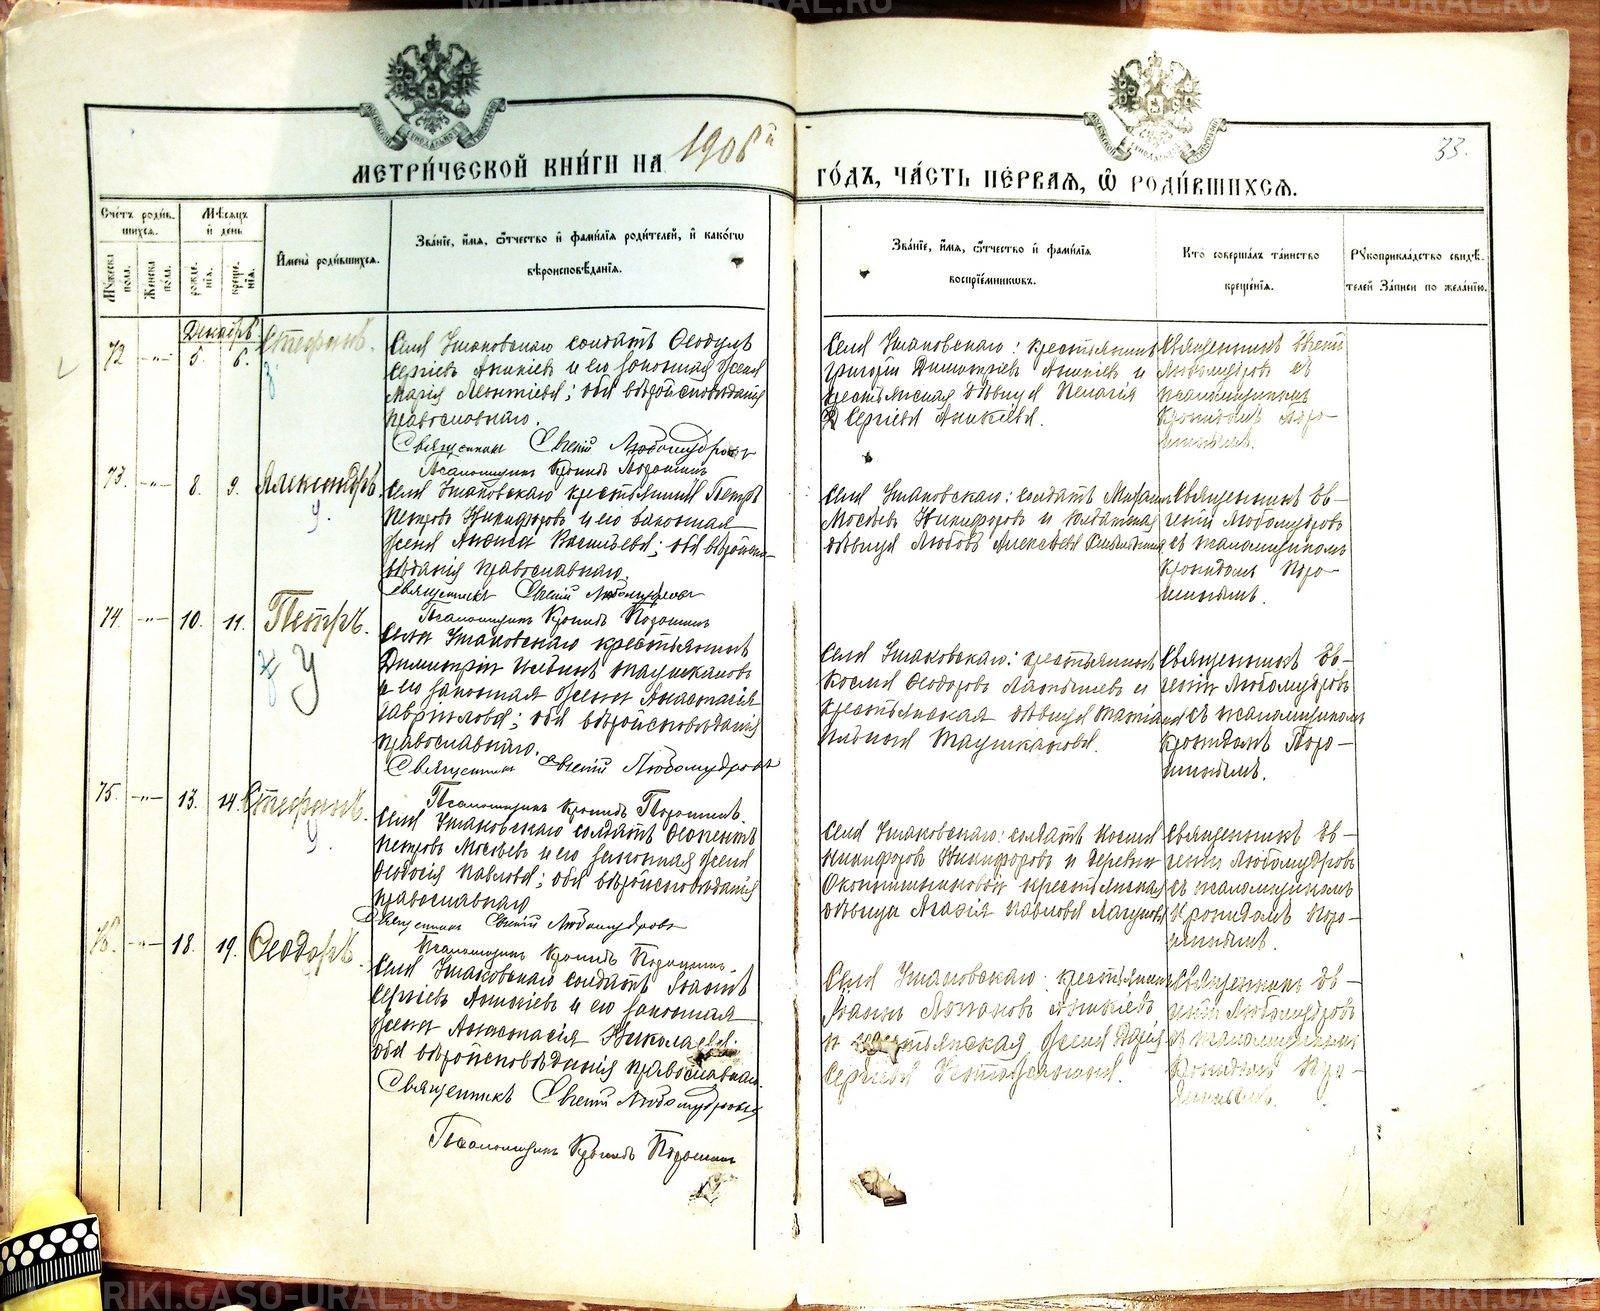 METRIKI.GASO-URAL.RU
METRIKI.GASO-URAL.RU
МЕТРИ́ЧЕСКОЙ КНИ́ГИ НА 1908й ГО́ДЪ, ЧА́СТЬ ПЕ́РВАЯ, Ѿ РОДИ́ВШИХСЯ.
33.
Сче́тъ роди́вшихся.
Мѣ́сяцъ и день
Му́жеска пола.
Же́нска пола.
рожде́нія.
креще́нія.
И́мена роди́вшихся.
Зва́ніе, и́мя, ѻ́тчество и фами́лія роди́телей, и како́гѡ
вѣроисповѣ́данія.
Зва́ніе, и́мя, ѻ́тчество и фами́лія
воспріе́мникѡвъ.
Кто соверша́лъ та́инство
креще́нія.
Рꙋкоприкла́дство свидѣ́телей за́писи по жела́нію.
Декабрь
72 -"- 5. 6. Стефанъ.
Села Ушаковскаго солдатъ Ѳеодулъ
Сергіевъ Аникіевъ и его законная жена
Марія Леонтіева; оба вѣроисповѣданія
православнаго.
Священникъ Евгеній Любомудровъ
Псаломщикъ Кронидъ Порошинъ
Села Ушаковскаго: крестьянинъ
Григорій Димитріевъ Аникіевъ и
крестьянская дѣвица Пелагія
Сергіева Аникіева.
Священникъ Евгеній
Любомудровъ съ
псаломщикомъ
Кронидомъ Поро-
шинымъ.
73. -"- 8. 9. Александръ.
Села Ушаковскаго крестьянинъ Петръ
Петровъ Никифоровъ и его законная
жена Анѳиса Васильева; оба вѣроиспо-
вѣданія православнаго.
Священникъ Евгеній Любомудровъ
Псаломщикъ Кронидъ Порошинъ
Села Ушаковскаго: солдатъ Михаилъ
Мосѣевъ Никифоровъ и солдатская
дѣвица Любовь Алексѣева
Священникъ Ев-
геній Любомудровъ
съ псаломщикомъ
Кронидомъ Поро-
шинымъ.
74. -"- 10. 11. Петръ.
Села Ушаковскаго крестьянинъ
Димитрій Ильинъ Таушкановъ
и его законная жена Анастасія
Гавріилова; оба вѣроисповѣданія
православнаго.
Священникъ Евгеній Любомудровъ
Псаломщикъ Кронидъ Порошинъ.
Села Ушаковскаго: крестьянинъ
Косма Ѳеодоровъ и
крестьянская дѣвица Татіана
Ильина Таушканова.
Священникъ Ев-
геній Любомудровъ
съ псаломщикомъ
Кронидомъ Поро-
шинымъ.
75. -"- 13. 14. Стефанъ.
Села Ушаковскаго солдатъ Ѳеопентъ
Петровъ Мосѣевъ и его законная жена
Ѳеодосія Павлова; оба вѣроисповѣданія
православнаго
Священникъ Евгеній Любомудровъ
Псаломщикъ Кронидъ Порошинъ.
Села Ушаковскаго: солдатъ Косма
Никифоровъ Никифоровъ и деревни
крестьянская
дѣвица Агаѳія Павлова
Священникъ Ев-
геній Любомудровъ
съ псаломщикомъ
Кронидомъ Поро-
шинымъ.
76. -"- 18. 19. Ѳеодоръ.
Села Ушаковскаго солдатъ Іоаннъ
Сергіевъ Аникіевъ и его законная
жена Анастасія Николаева;
оба вѣроисповѣданія православнаго.
Священникъ Евгеній Любомудровъ
Псаломщикъ Кронидъ Порошинъ
Села Ушаковскаго: крестьянинъ
Іоаннъ Аникіевъ
и крестьянская жена Дарія
Сергіева
Священникъ Ев-
геній Любомудровъ
съ псаломщикомъ
Кронидомъ Поро-
шинымъ.
METRIKI.GASO-URAL.RU
METRIKI.GASO-URAL.RU